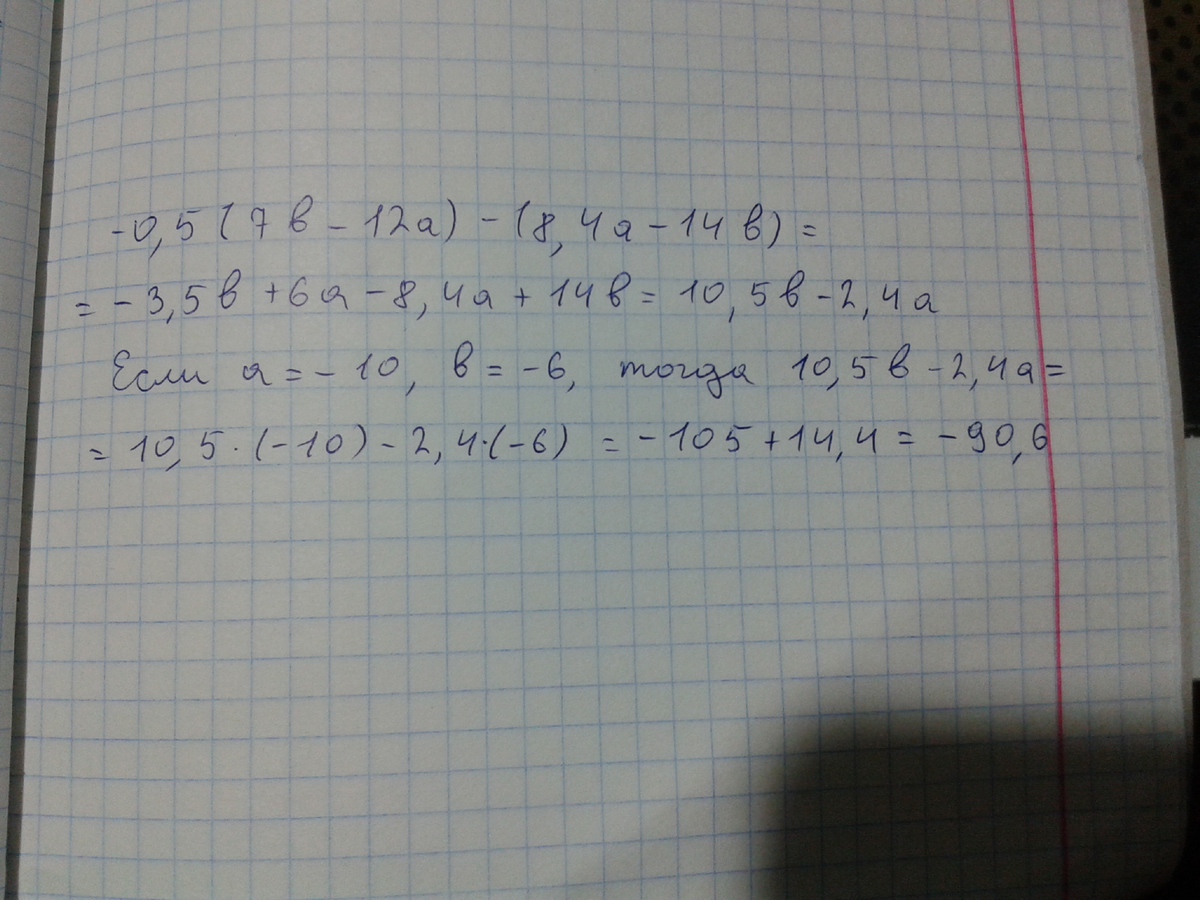 -0,5(7в-12а)-(8,4а-14в)=
=-3,5в+6а-8,4а+14в=10,5в-2,4а
Если а=-10, в=-6, тогда 10,5в-2,4а=
=10,5·(-10)-2,4·(-6)=-105+14,4=-90,6